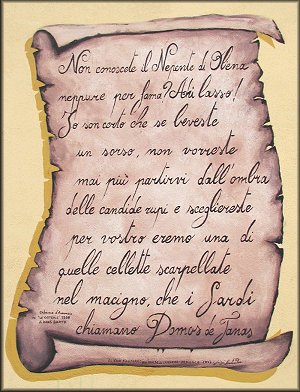 Non conoscete il Nepente di Oliena
neppure per fama? Ahi lasso!
Io son certo che se beveste
un sorso, non vorreste
mai più partirvi dall'ombra
delle candide rupi e scegliereste
per vostro eremo una di
quelle cellette scarpellate
nel macigno, che i Sardi
chiamano Domos de Janas